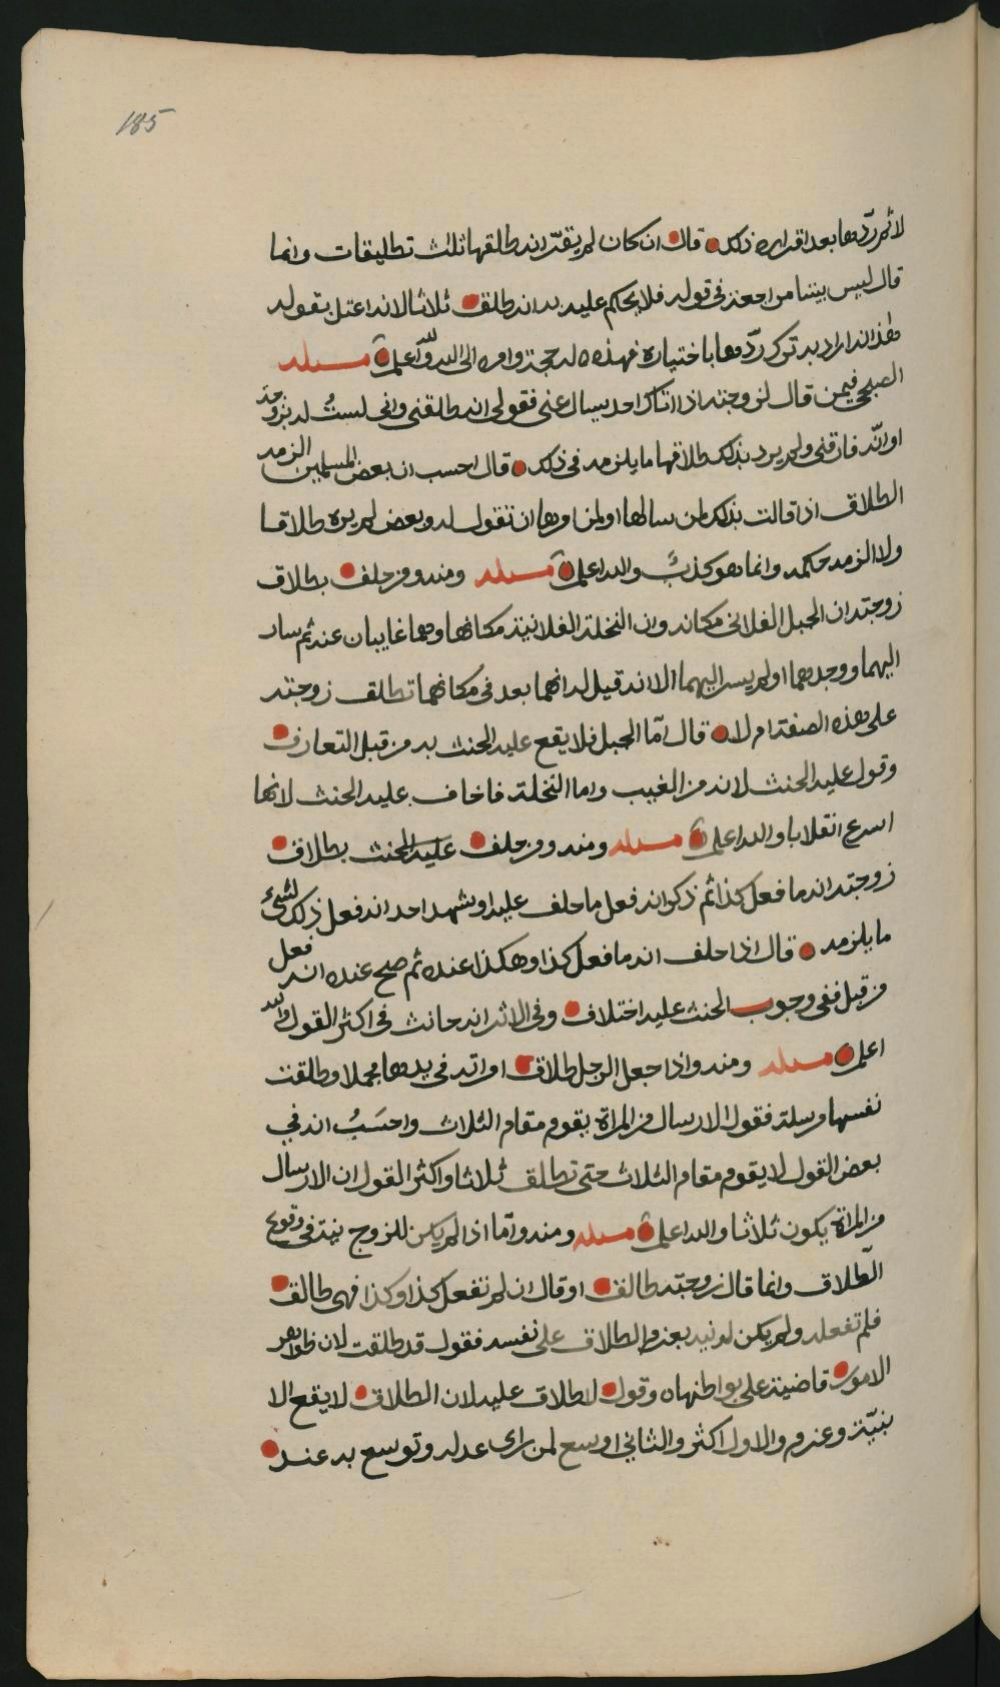 185
لاثم ردّها بعد اقراره ذلك قال ان كان لم يقرّ انه طلقها ثلث تطليقات وانما
قال ليس بيننا مراجعة في قوله فلا يحكم عليه بد انه طلق ثلاثا الا انه اعتل بقوله
هذا انه اراد به ترك ردّها باختياره فهذه له حجة وامره الى الله والله اعلم مسئله
الصبحي فيمن قال لزوجته اذا اتاك احد يسال عني فقولي انه طلقني واني لستُ له بزوجة
او انّه فارقني ولم يرد بذلك طلاقها ما يلزمه في ذلك قال احسب ان بعض المسلمين الزمه
الطلاق اذا قالت بذلك لمن سالها او لمن امرها ان تقول له وبعض لم يره طلاقا
ولا الزمه حكمه وانما هو كذبٌ والله اعلم مسئله ومنه ومن حلف بطلاق
زوجته ان الجبل الفلاني مكانه وان النخلة الفلانية مكانها وهما غايبان عنه ثم سار
اليهما ووجدهما او لم يسر اليهما الا انه قيل له انهما بعد في مكانهما تطلق زوجته
على هذه الصفة ام لا قال امّا الجبل فلا يقع عليه الحنث به من قبل التعارف
وقول عليه الحنث لانه من الغيب واما النخلة فاخاف عليه الحنث لانها
اسرع انقلابا والله اعلم مسئله ومنه ومن حلف عليه الحنث بطلاق
زوجته انه ما فعل كذا ثم ذكر انه فعل ما حلف عليه او شهد احد انه فعل ذلك الشيء
ما يلزمه قال اذا حلف انه ما فعل كذا وهكذا عنده ثم صح عنده انه فعل
من قبل ففي وجوب الحنث عليه اختلاف وفي الاثر انه حانث في اكثر القول والله
اعلم مسئله ومنه واذا جعل الرجل طلاق امراته في يدها مجملا وطلقت
نفسها مرسلة فقول الارسال من المراة يقوم مقام الثلاث واحسَبُ انه في
بعض القول لا يقوم مقام الثلاث حتى تطلق ثلاثا واكثر القول ان الارسال
من المراة يكون ثلاثا والله اعلم مسئله ومنه وامّا اذا لم يكن للزوج نية في وقوع
الطّلاق وانما قال زوجته طالق او قال ان لم تفعل كذا وكذا فهي طالق
فلم تفعله ولم يكن له نية بعزم الطلاق على نفسه فقول قد طلقت لان ظواهر
الامور قاضية على بواطنها وقول لا طلاق عليه لان الطلاق لا يقع الا
بنيّة وعزم والاول اكثر والثاني اوسع لمن راى عدله وتوسع به عند